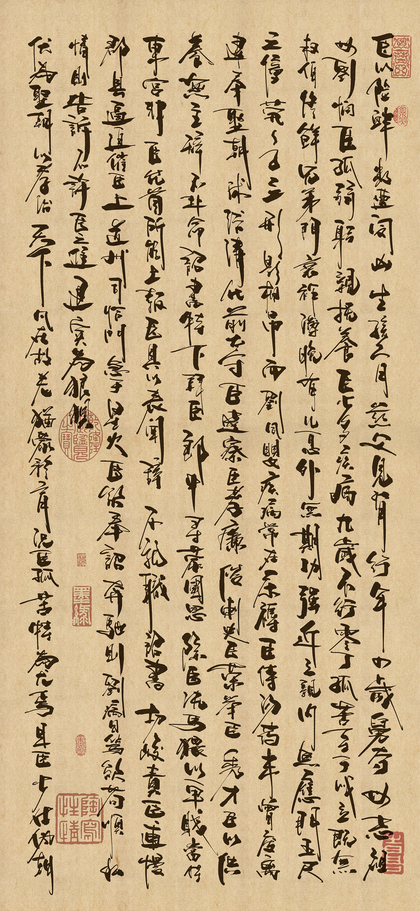 臣以險釁夙遭閔凶生孩六月慈父見背行年四歲舅奪母志祖
母劉憫臣孤弱躬親撫養臣少多疾病九歲不行零丁孤苦至于成立既無
叔伯終鮮兄弟門衰祚薄晚有兒息外無期功強近之親內無應門五尺
之僮煢煢孑立形影相弔而劉夙嬰疾病常在床蓐臣侍湯藥未曾廢離
逮奉聖朝沐浴清化前太守臣逵察臣孝廉後刺史臣榮舉臣秀才臣以供
養無主辭不赴命詔書特下拜臣郎中尋蒙國恩除臣洗馬猥以微賤當侍
東宮非臣隕首所能上報臣具以表聞辭不就職詔書切峻責臣逋慢
郡縣逼迫催臣上道州司臨門急于星火臣欲奉詔奔馳則劉病日篤欲苟順私
情則告訴不許臣之進退實為狼狽
伏惟聖朝以孝治天下凡在故老猶蒙矜育況臣孤苦特為尤甚且臣少仕偽朝